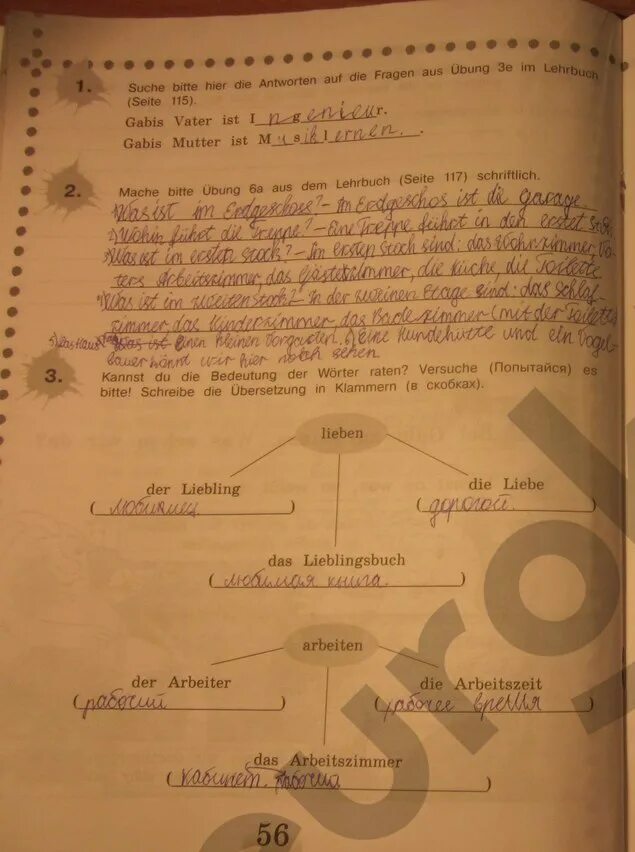 1.
Suche bitte hier die Antworten auf die Fragen aus Übung 3e im Lehrbuch
(Seite 115).
Gabis Vater ist Ingenieur.
Gabis Mutter ist Musiklernen.
2.
Mache bitte Übung 6a aus dem Lehrbuch (Seite 117) schriftlich.
1) Was ist im Erdgeschos? - Im Erdgeschos ist die garage
2) Wohin führt die Treppe? - Eine Treppe führt in den erstet
3) Was ist im ersten stock? - Im ersten Stock sind: das Wohnzimmer, Va-
ters Arbeitszimmer, das Gästezimmer, die Küche, die Toilette
4) Was ist im zweiten stock? In der zweinen Etage sind: das schlaf-
zimmer, das Kinderzimmer das Badezimmer (mit der Toilette)
5) Das Haus einen kleinen Vorgarten. Keine Hundehütte und ein Vogel-
bauer könnt wir hier noch sehen
3.
Kannst du die Bedeutung der Wörter raten? Versuche (Попытайся) es
bitte! Schreibe die Übersetzung in Klammern (в скобках).
lieben
der Liebling
die Liebe
(любимец)
(дорогой.)
das Lieblingsbuch
(любимая книга.)
arbeiten
der Arbeiter
die Arbeitszeit
(рабочий)
(рабочее время)
das Arbeitszimmer
(кабинет.)
56
euro